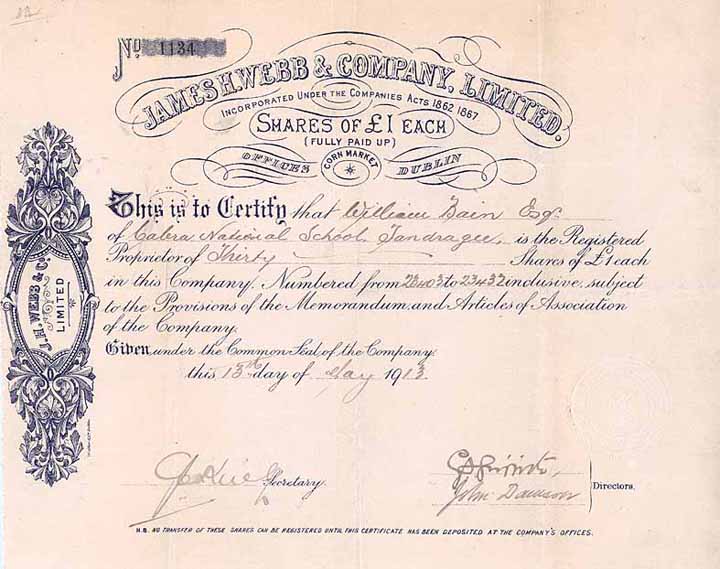 No. 1134
JAMES H. WEBB & COMPANY, LIMITED.
INCORPORATED UNDER THE COMPANIES ACTS 1862 1867
SHARES OF £1 EACH
(FULLY PAID UP)
OFFICES CORN MARKET DUBLIN
This is to Certify that William Bain Esq.
of Cabra National School Tandragee, is the Registered
Proprietor of Thirty Shares of £1 each
in this Company. Numbered from 23403 to 23432 inclusive, subject
to the Provisions of the Memorandum and Articles of Association
of the Company.
Given, under the Common Seal of the Company.
this 13th day of May 1913.
J. H. WEBB & Co.
LIMITED
Secretary.
John Dawson
Directors.
N.B. NO TRANSFER OF THESE SHARES CAN BE REGISTERED UNTIL THIS CERTIFICATE HAS BEEN DEPOSITED AT THE COMPANY'S OFFICES.